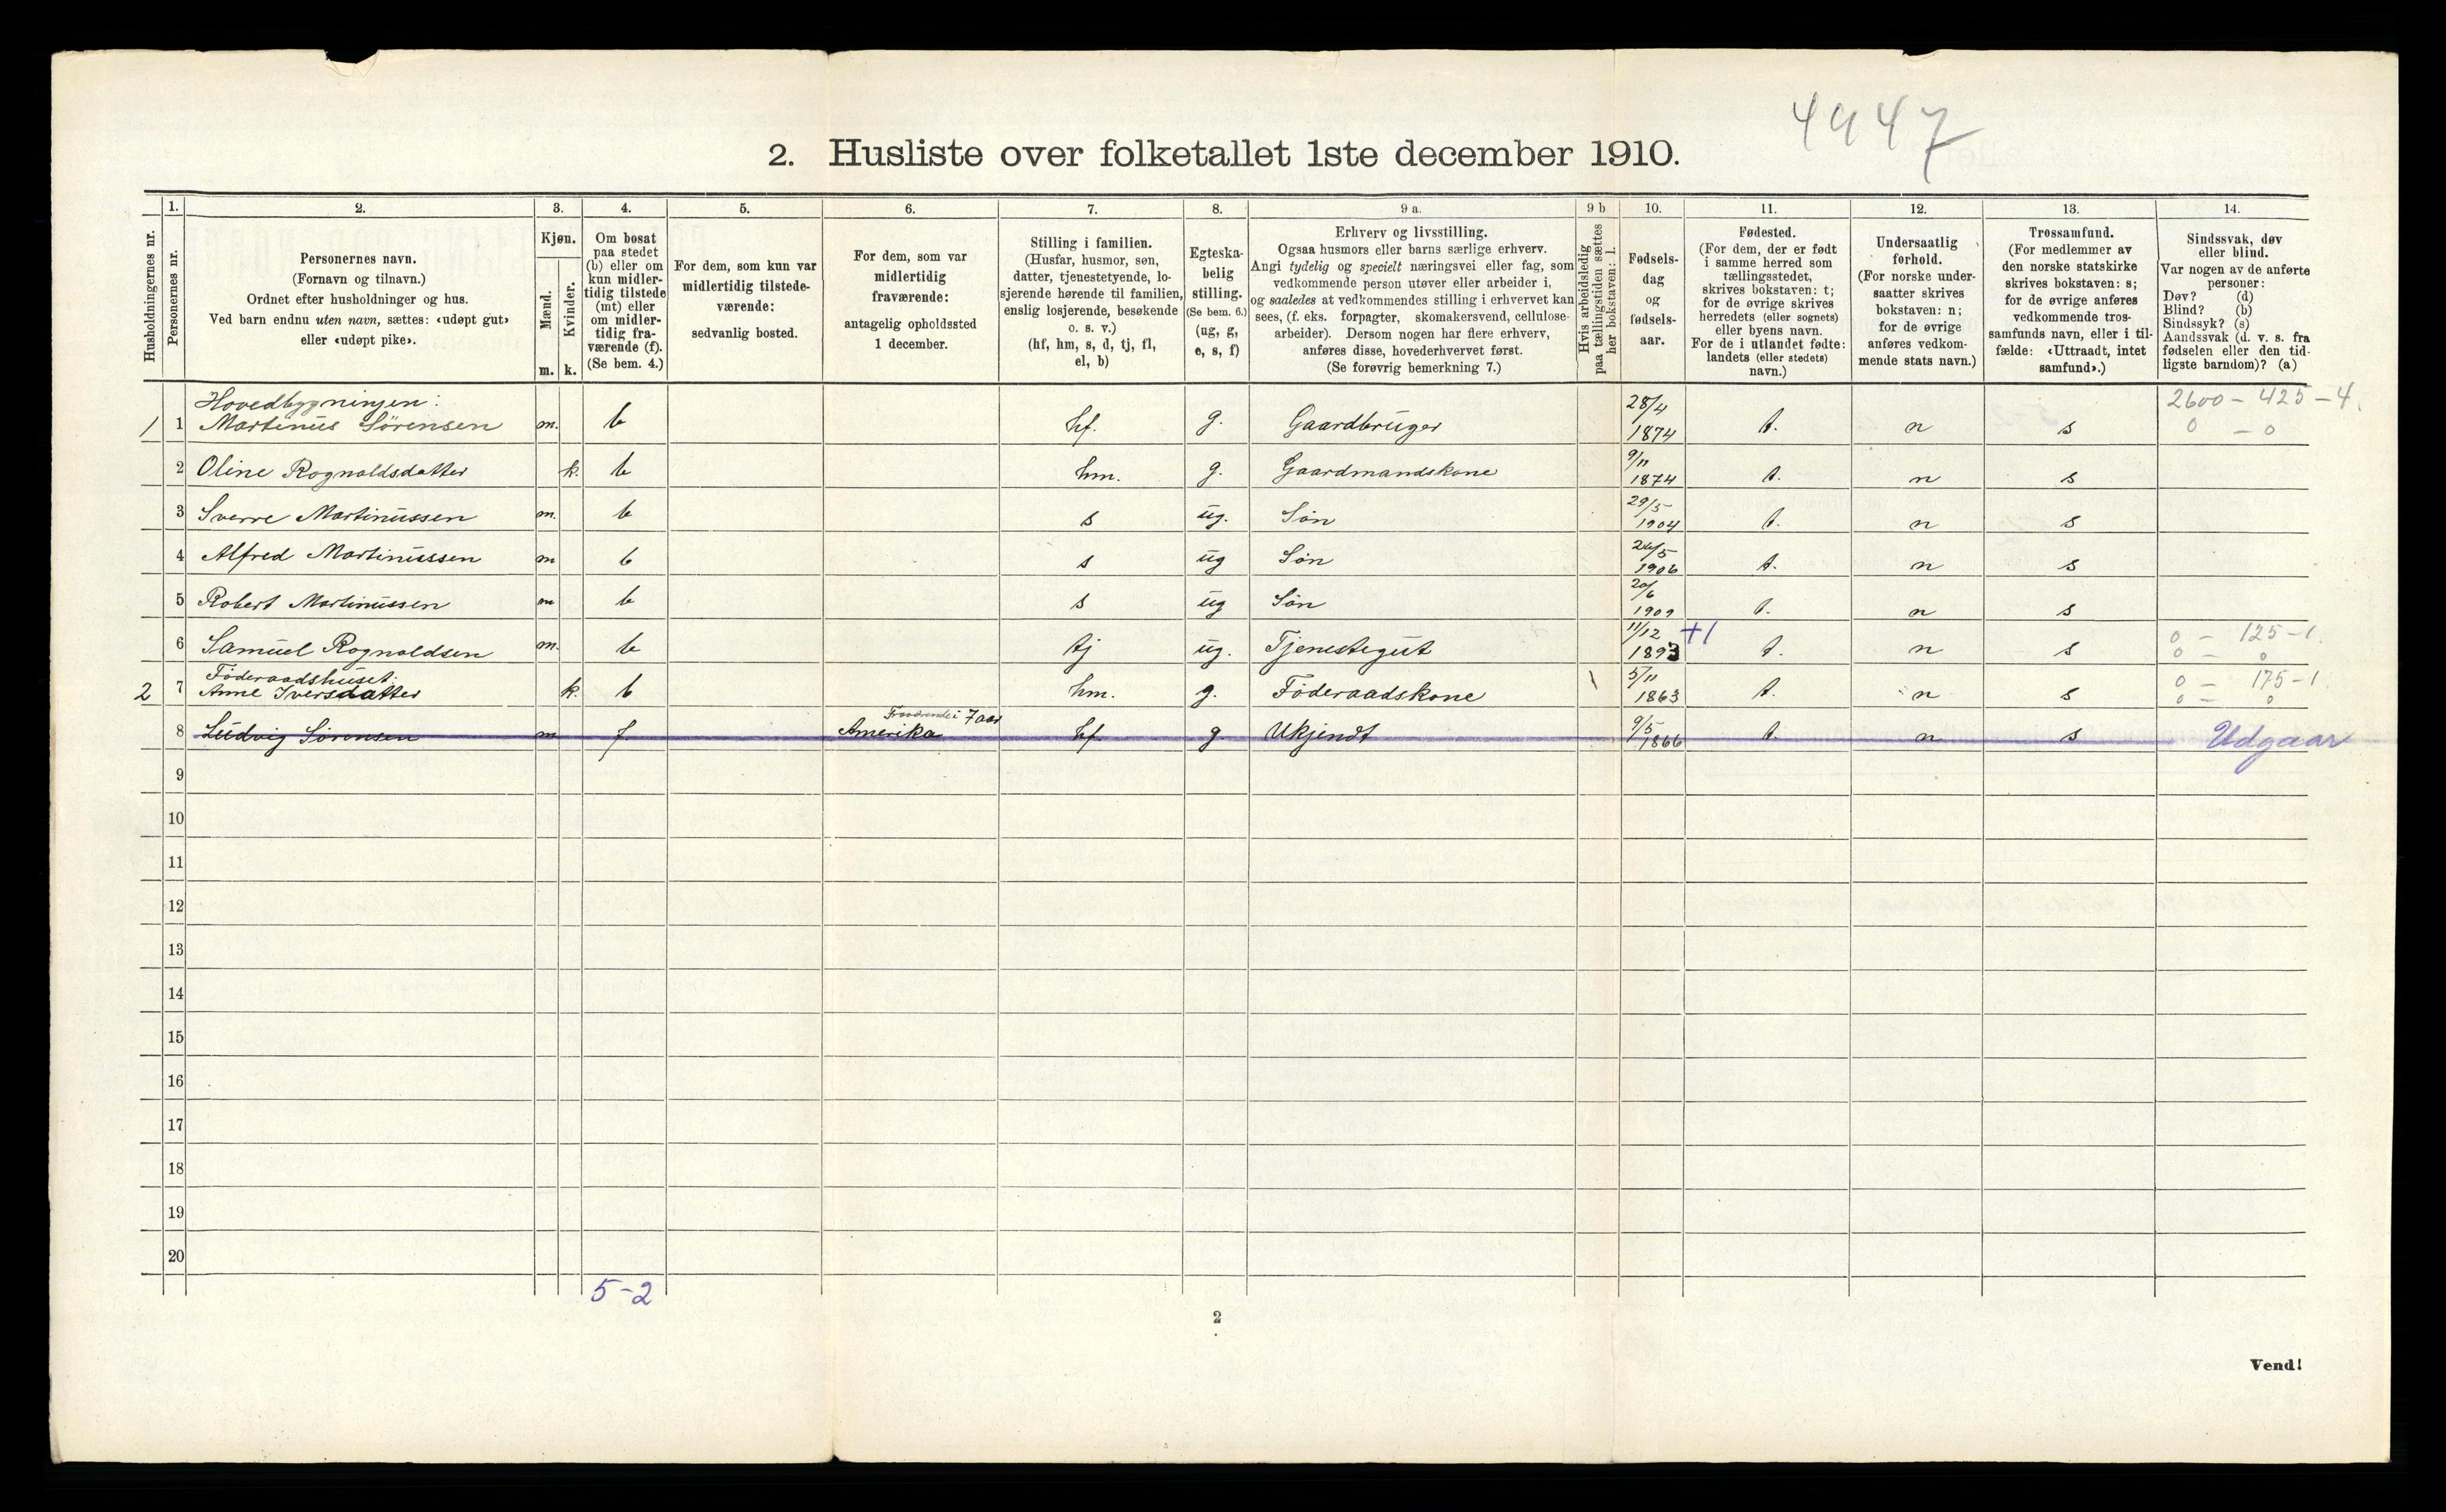 4447
2. Husliste over folketallet 1ste december 1910.
1. 2. 3. 4. 5. 6. 7. 8. 9 a. 9 b 10. 11. 12. 13. 14.
Husholdningernes nr.
Personernes nr.
Personernes navn.
(Fornavn og tilnavn.)
Ordnet efter husholdninger og hus.
Ved barn endnu uten navn, sættes: «udøpt gut»
eller «udøpt pike».
Kjøn.
Mænd.
Kvinder.
m. k.
Om bosat
paa stedet
(b) eller om
kun midler-
tidig tilstede
(mt) eller
om midler-
tidig fra-
værende (f).
(Se bem. 4.)
For dem, som kun var
midlertidig tilstede-
værende:
sedvanlig bosted.
For dem, som var
midlertidig
fraværende:
antagelig opholdssted
1 december.
Stilling i familien.
(Husfar, husmor, søn,
datter, tjenestetyende, lo-
sjerende hørende til familien,
enslig losjerende, besøkende
o. s. v.)
(hf, hm, s, d, tj, fl,
el, b)
Egteska-
belig
stilling.
(Se bem. 6.)
(ug, g,
e, s, f)
Erhverv og livsstilling.
Ogsaa husmors eller barns særlige erhverv.
Angi tydelig og specielt næringsvei eller fag, som
vedkommende person utøver eller arbeider i,
og saaledes at vedkommendes stilling i erhvervet kan
sees, (f. eks. forpagter, skomakersvend, cellulose-
arbeider). Dersom nogen har flere erhverv,
anføres disse, hovederhvervet først.
(Se forøvrig bemerkning 7.)
Hvis arbeidsledig
paa tællingstiden sættes
her bokstaven: l.
Fødsels-
dag
og
fødsels-
aar.
Fødested.
(For dem, der er født
i samme herred som
tællingsstedet,
skrives bokstaven: t;
for de øvrige skrives
herredets (eller sognets)
eller byens navn.
For de i utlandet fødte:
landets (eller stedets)
navn.)
Undersaatlig
forhold.
(For norske under-
saatter skrives
bokstaven: n;
for de øvrige
anføres vedkom-
mende stats navn.)
Trossamfund.
(For medlemmer av
den norske statskirke
skrives bokstaven: s;
for de øvrige anføres
vedkommende tros-
samfunds navn, eller i til-
fælde: «Uttraadt, intet
samfund».)
Sindssvak, døv
eller blind.
Var nogen av de anførte
personer:
Døv? (d)
Blind? (b)
Sindssyk? (s)
Aandssvak (d. v. s. fra
fødselen eller den tid-
ligste barndom)? (a)
Hovedbygningen: 2600 - 425 - 4.
1 1 Martinus Sörensen m. b hf. g. Gaardbruger 28/4 1874 t. n s 0 - 0
2 Oline Rognaldsdatter k. b hm. g. Gaardmandskone 9/11 1874 t. n s
3 Sverre Martinussen m. b s ug. Sön 29/5 1904 t. n s
4 Alfred Martinussen m b s ug Sön 26/5 1906 t. n s
5 Robert Martinussen m b s ug Sön 20/6 1909 t. n s
6 Samuel Rognaldsen m. b tj ug. Tjenestegut 11/12 1893 +1 t. n s 0 - 125 - 1. 0 - 0
Föderaadshuset:
2 7 Anne Iversdatter k. b hm. g. Föderaadskone 5/11 1863 t. n s 0 - 175 - 1. 0 - 0
8 Ludvig Sörensen m f. Fraværende i 7 aar Amerika hf. g. Ukjendt 9/5 1866 t. n s Udgaar
9
10
11
12
13
14
15
16
17
18
19
20
5-2
2
Vend!